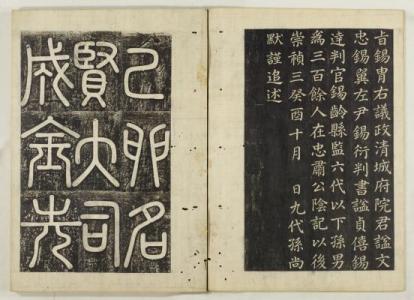 旨錫胄右議政清城府院君謚文
忠錫翼左尹錫衍判書謚貞僖錫
達判官錫齡縣監六代以下孫男
爲三百餘人在忠肅公陰記以後
崇禎三癸酉十月 日九代孫尚
默謹追述
己卯名
賢大司
成金先